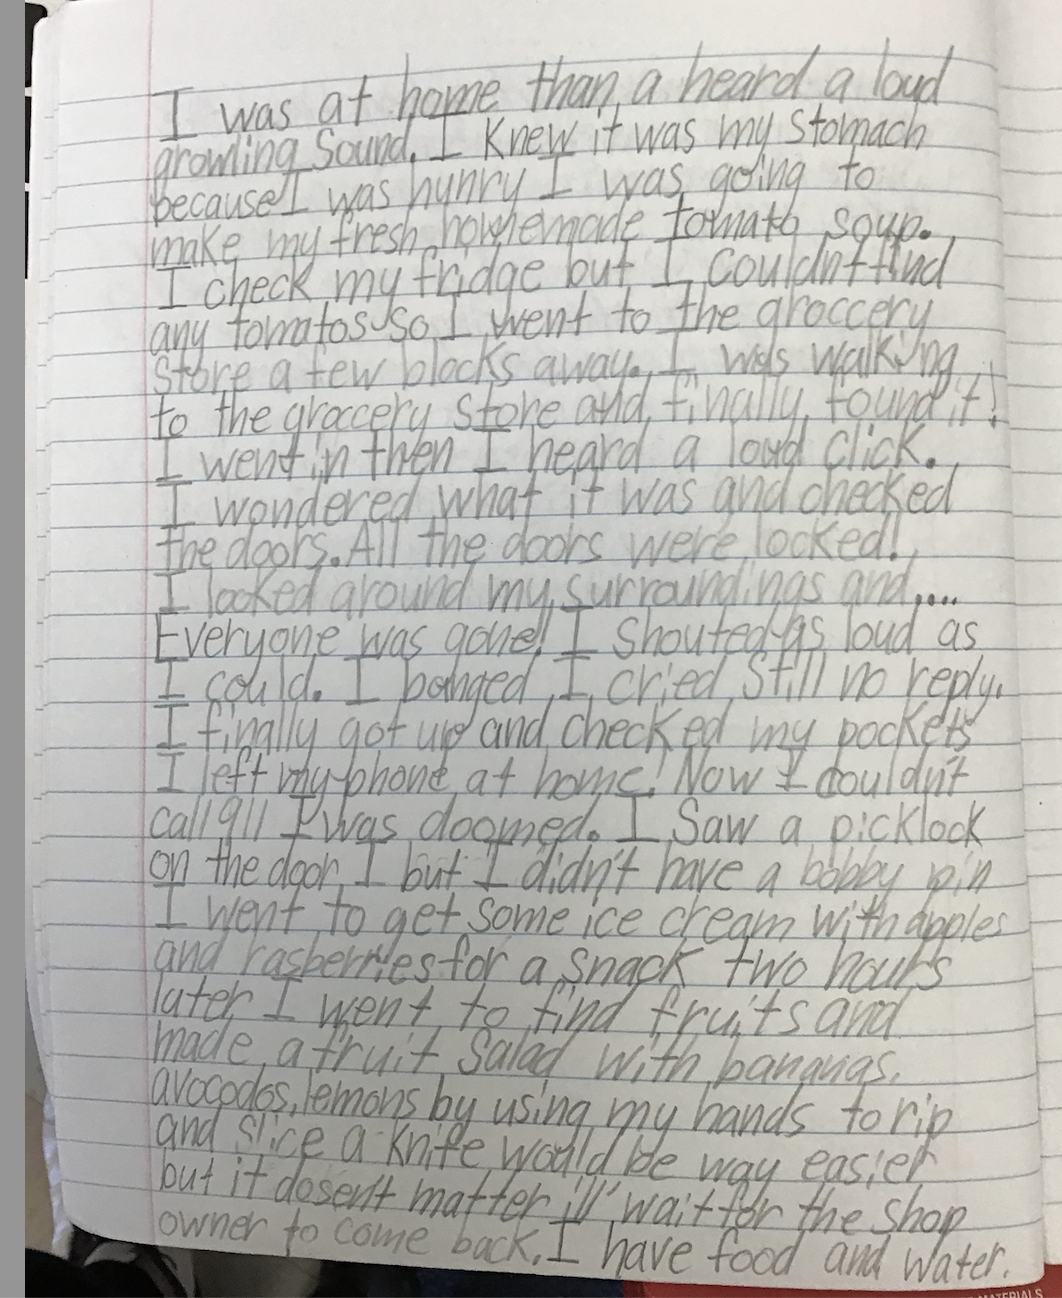 I was at home than a heard a loud
growling Sound. I Knew it was my Stomach
because I was hunry I was going to
make my fresh homemade tomato soup.
I check my fridge but I couldn't find
any tomatos so I went to the groccery
Store a few blocks away. I was walking
to the groccery Store and finally found it!
I went in then I heard a loud click.
I wondered what it was and checked
the doors. All the doors were locked!
I looked around my surroundings and....
Everyone was gone! I Shouted as loud as
I could. I banged I cried Still no reply.
I finally got up and checked my pockets
I left my phone at home! Now I couldn't
call 911 I was doomed. I Saw a picklock
on the door I but I didn't have a bobby pin
I went to get Some ice cream with apples
and rasberries for a Snack two hours
later I went to find fruits and
made a fruit Salad with bananas,
avocodos, lemons by using my hands to rip
and slice a knife would be way easier
but it dosen't matter i'll wait for the Shop
owner to come back. I have food and water.
MATERIALS